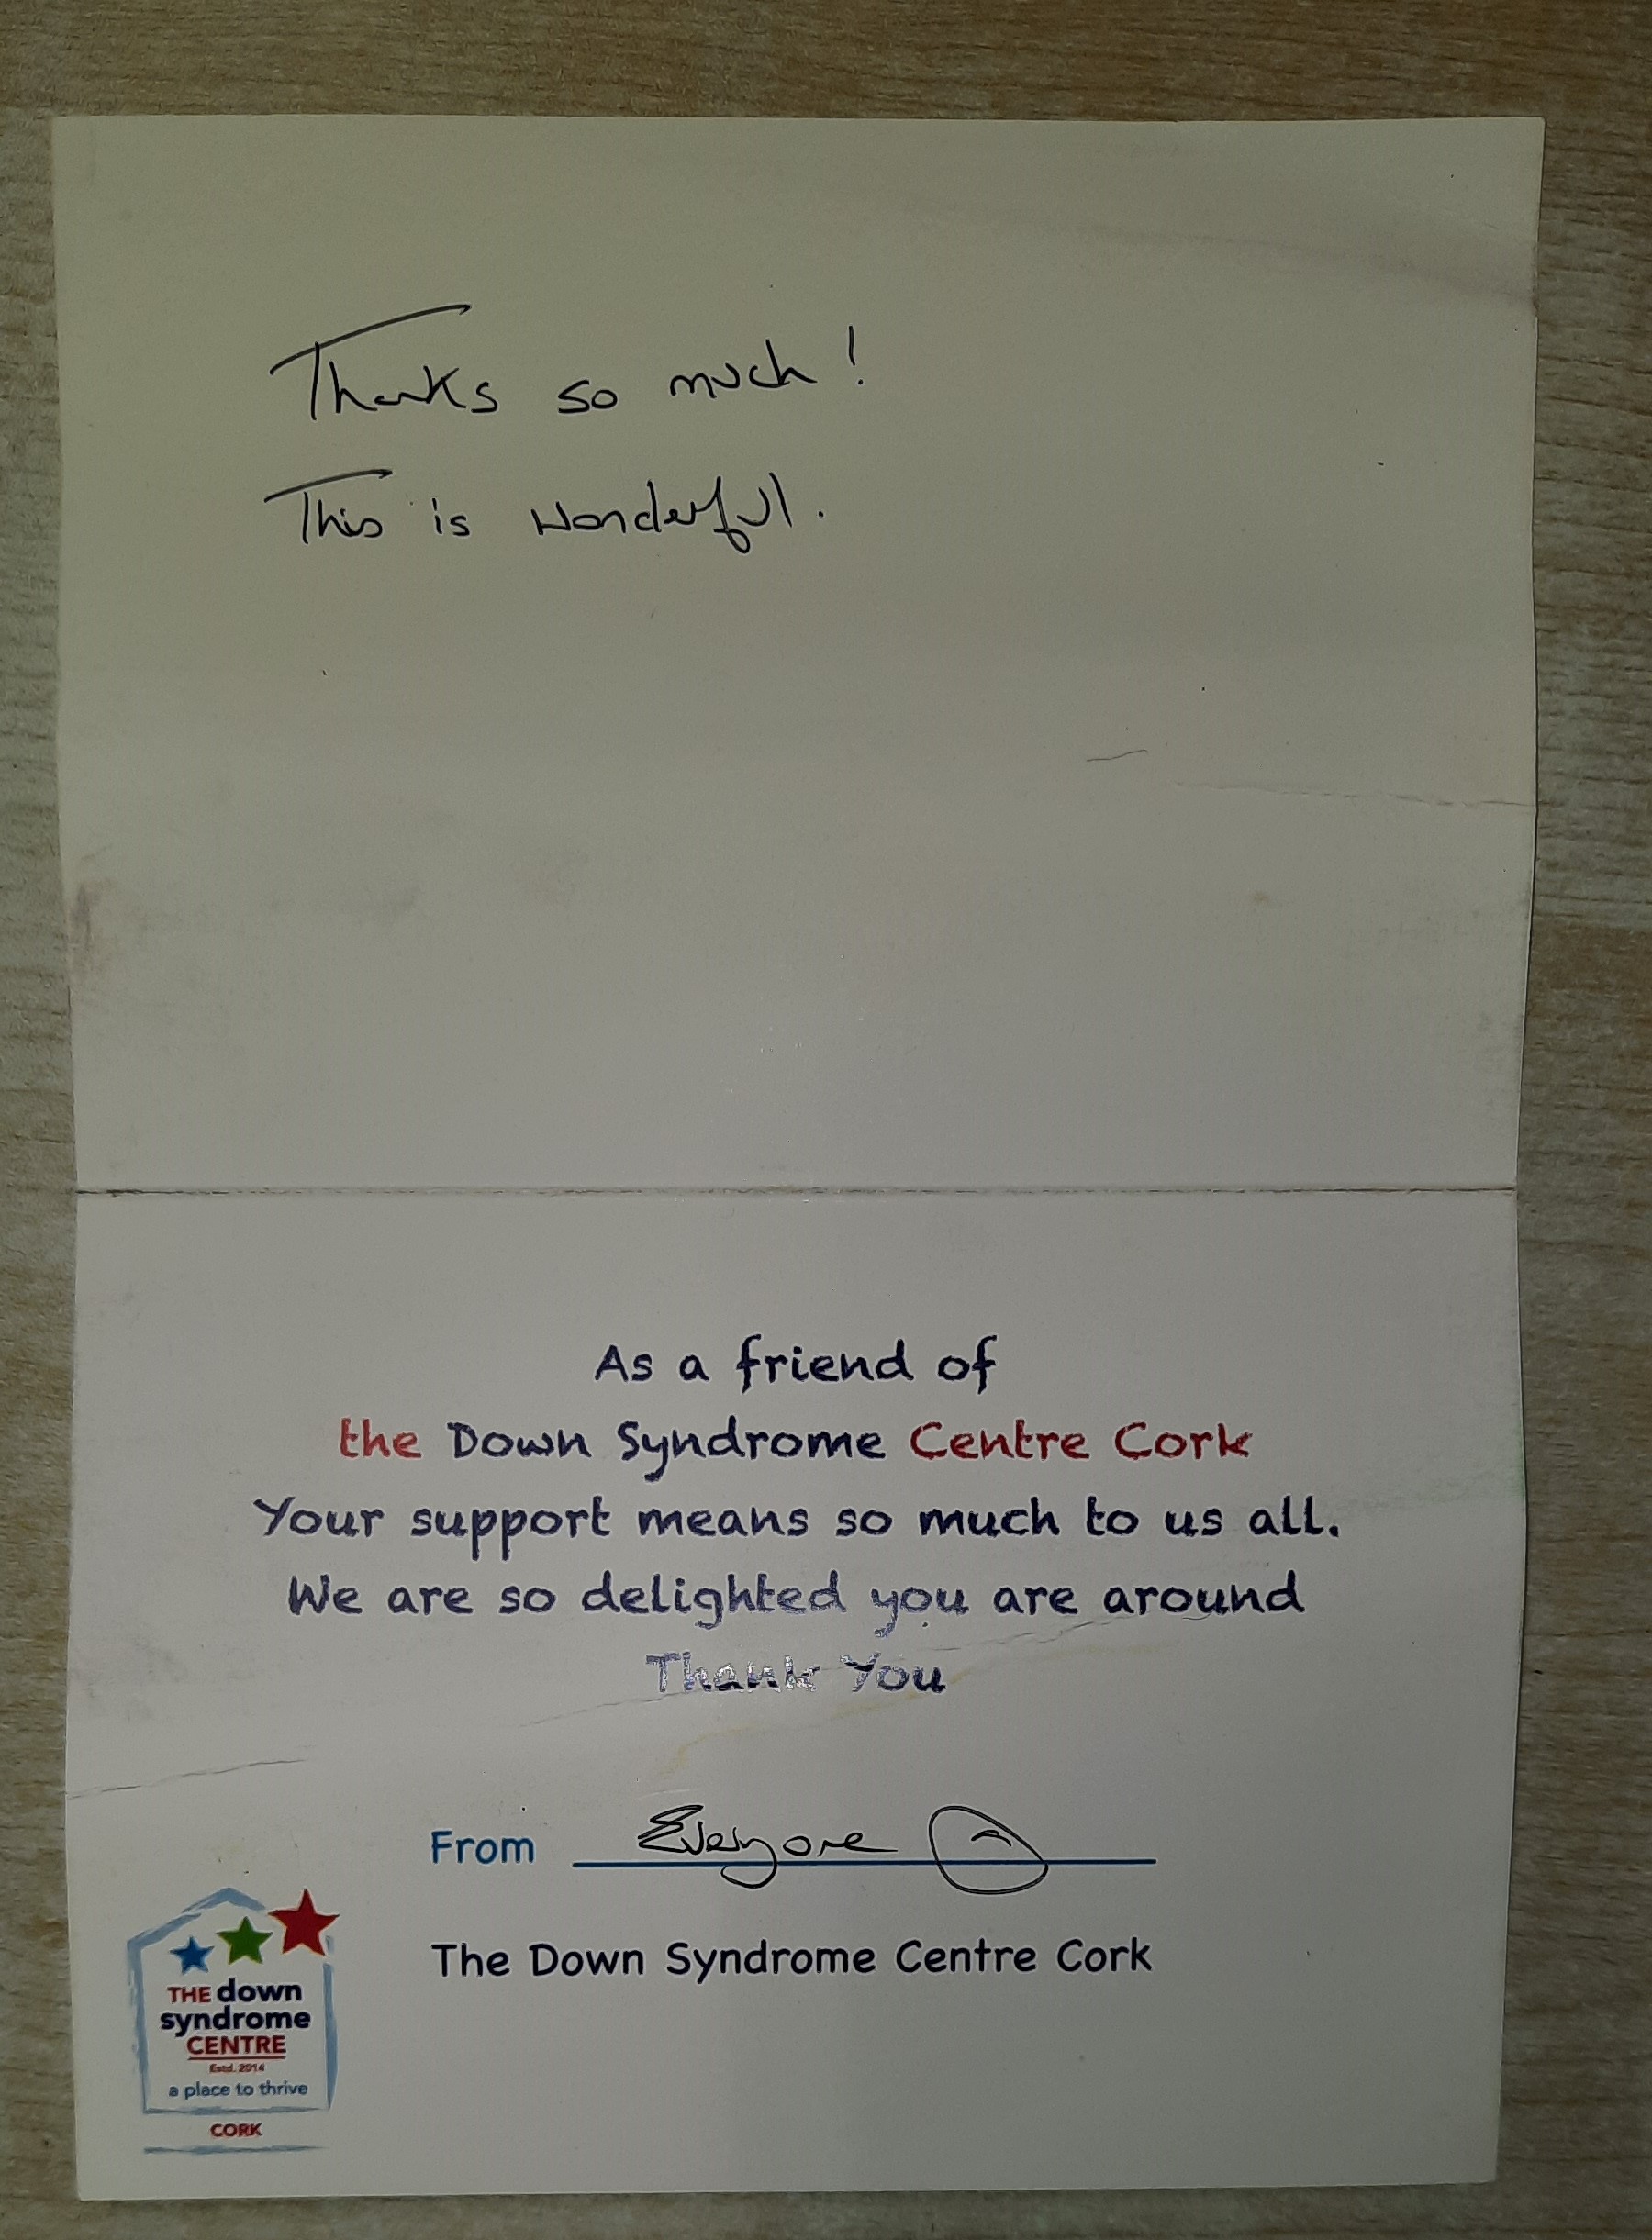 Thanks so much!
This is wonderful.
As a friend of
the Down Syndrome Centre Cork
Your support means so much to us all.
We are so delighted you are around
Thank You
From Everyone @
The Down Syndrome Centre Cork
THE down
syndrome
CENTRE
Estd. 2014
a place to thrive
CORK